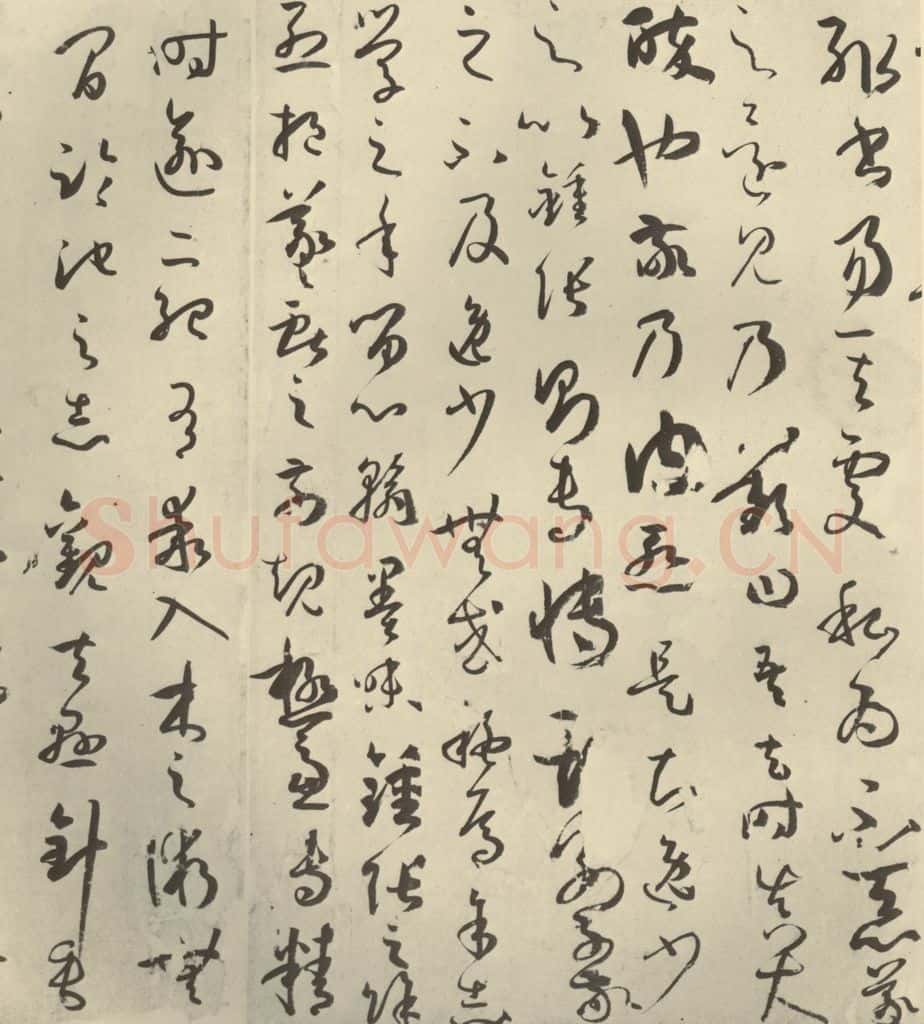 輒書易其處私為不惡羲
之還見乃歎曰吾去時真大
醉也敬乃內慙是知逸少
之比鍾張則專博斯別子敬
之不及逸少無或疑焉余志
學之年留心翰墨味鍾張之餘
烈挹羲獻之前規極慮專精
時逾二紀有乖入木之術無
間臨池之志觀夫懸針垂
Shufawang.CN